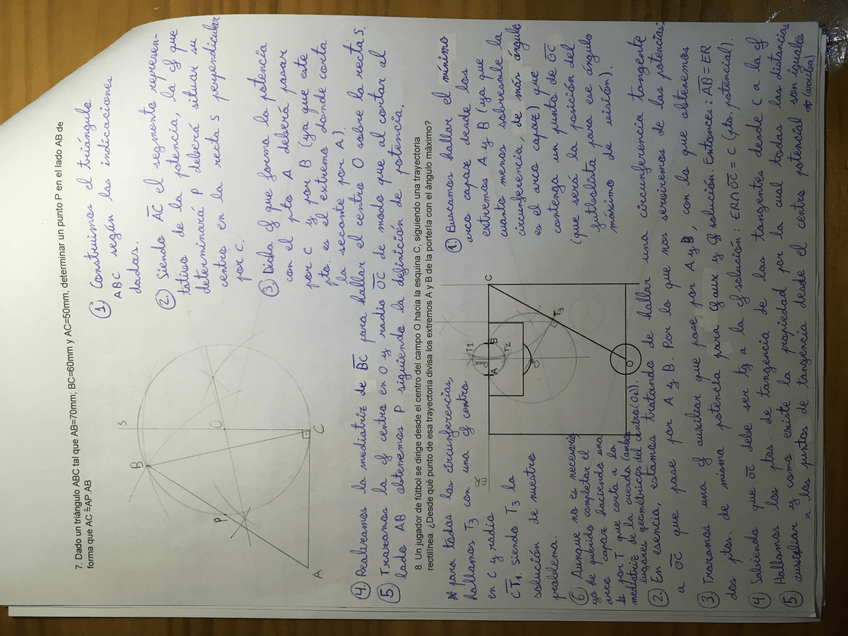 7. Dado un triángulo ABC tal que AB=70mm, BC=60mm y AC=50mm, determinar un punto P en el lado AB de
forma que AC²=AP.AB
① Construimos el triángulo
ABC según las indicaciones
dadas.
② Siendo AC el segmento represen-
tativo de la potencia, la cf que
determinará P deberá situar su
centro en la recta s perpendicular
por C.
③ Dicha cf que forma la potencia
con el pto A deberá pasar
por C y por B (ya que este
pto es el extremo donde corta
la secante por A).
B
S
P
O
A
C
④ Realizamos la mediatriz de BC para hallar el centro O sobre la recta S.
⑤ Trazamos la cf centro en O y radio OC de modo que al cortar el
lado AB obtenemos P siguiendo la definición de potencia.
8. Un jugador de fútbol se dirige desde el centro del campo O hacia la esquina C, siguiendo una trayectoria
rectilínea. ¿Desde qué punto de esa trayectoria divisa los extremos A y B de la portería con el ángulo máximo?
① Buscamos hallar el mínimo
arco capaz desde los
extremos A y B (ya que
cuanto menos sobresalte la
circunferencia, de más ángulo
es el arco capaz) que
contenga un punto de OC
(que será la posición del
futbolista para ese ángulo
máximo de visión).
C
T1
T2
T3
A
B
O
* para todas las circunferencias,
hallamos T3 con una cf centro
en C y radio
CT1, siendo T3 la
solución de nuestro
problema.
⑥ Aunque no es necesario,
ya he podido completar el
arco capaz haciendo una
⊥ por T que corta a la
mediatriz de la cuerda (ambos
lugares geométricos del centro: O2).
② En esencia, estamos tratando de hallar una circunferencia tangente
a OC que pase por A y B. Por lo que nos serviremos de las potencias:
③ Trazamos una cf auxiliar que pase por A y B, con lo que obtenemos
dos ptos. de misma potencia para cf aux y cf solución. Entonces: AB = ER
④ Sabiendo que OC debe ser tg a la cf solución: ER∩OC = C (pto. potencial).
⑤ Hallamos los ptos de tangencia de las tangentes desde C a la cf
auxiliar y como existe la propiedad por la cual todas las distancias
a los puntos de tangencia desde el centro potencial son iguales
*(arriba)